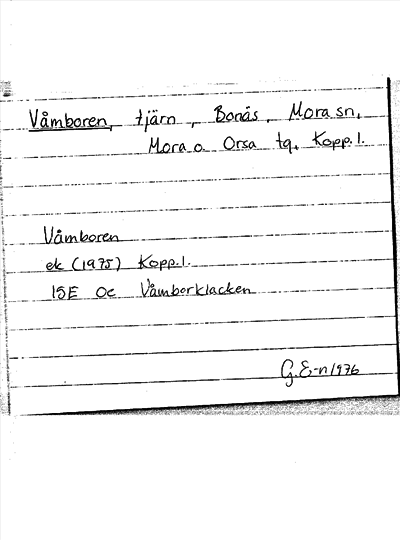 Våmboren, tjärn, Bonäs, Mora sn,
Mora o. Orsa tg, Kopp. l.
Våmboren
ek (1975) Kopp. l.
15E 0c Våmborklacken
G.E-n 1976